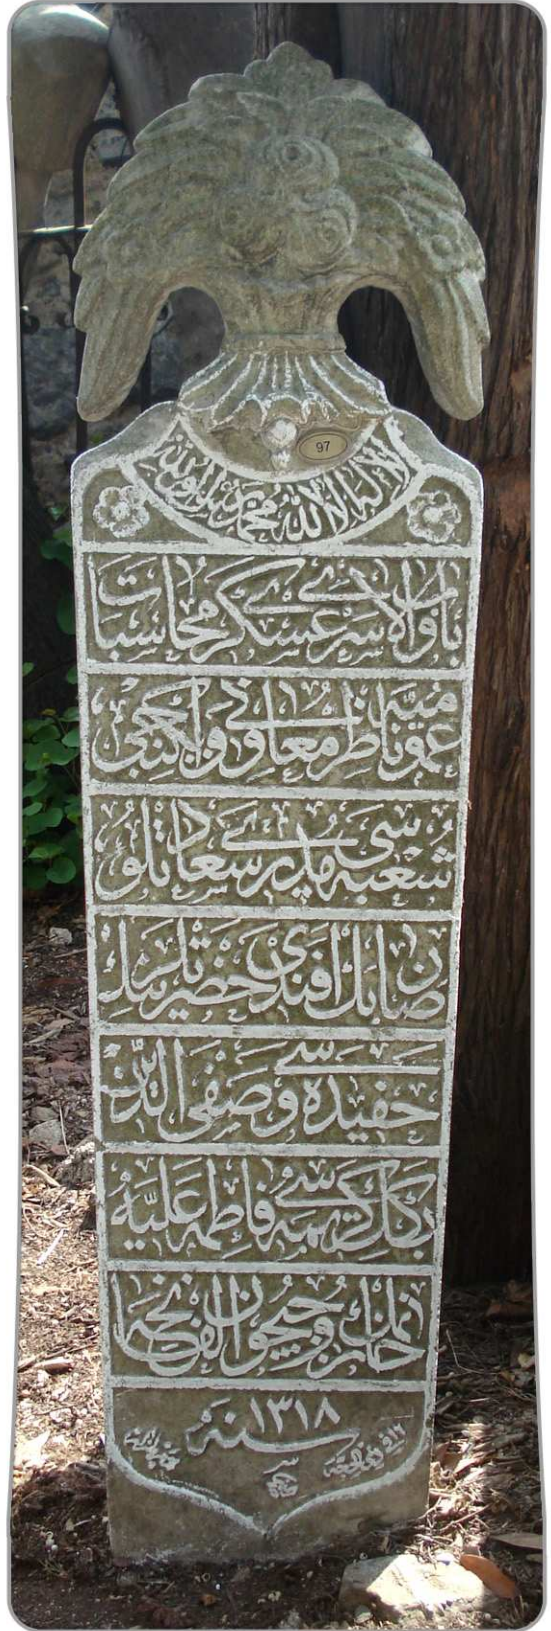 97
لا اله الا الله محمد رسول الله
باب والای سر عسکری محاسبات
عمومیه ناظر معاونی و ایکنجی
شعبه سی مدیری سعادتلو
صابر افندی حضرتلرینك
حفیده سی وصفی الدین
بك کریمه سی فاطمه علیه
خانمك روحیچون الفاتحه
سنه ١٣١٨